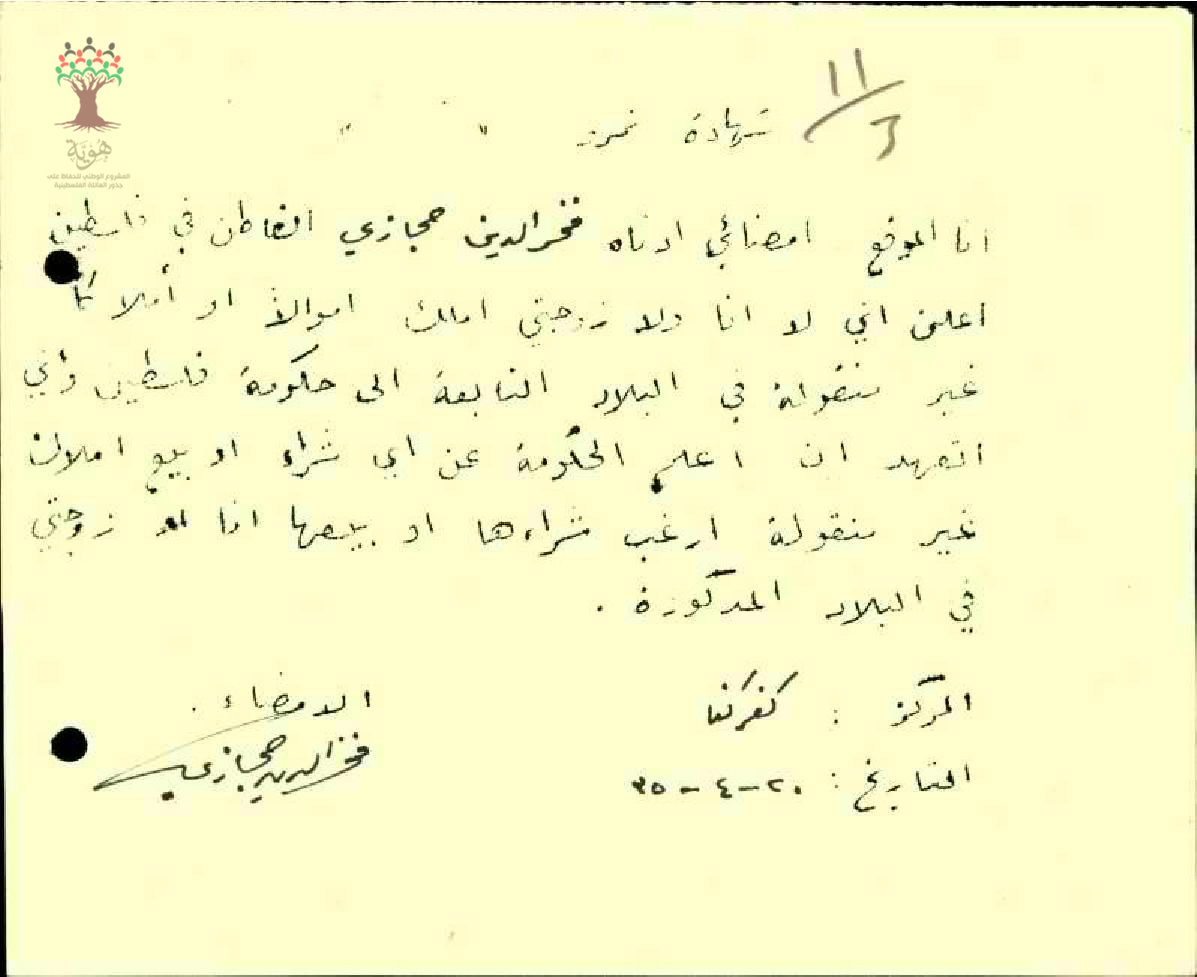 هُوِيَّة
المشروع الوطني للحفاظ على
جذور العائلة الفلسطينية
11/3
شهادة نمرة " "
انا الموقع امضائي ادناه فخر الدين حجازي القاطن في فلسطين
اعلن اني لا انا ولا زوجتي املك اموالاً او أملاكاً
غير منقولة في البلاد التابعة الى حكومة فلسطين وأني
اتعهد ان اعلم الحكومة عن اي شراء او بيع املاك
غير منقولة ارغب شراءها او بيعها انا او زوجتي
في البلاد المذكورة .
المركز : كفركنا
الامضاء .
التاريخ : ٢٠-٤-٣٥
فخر الدين حجازي